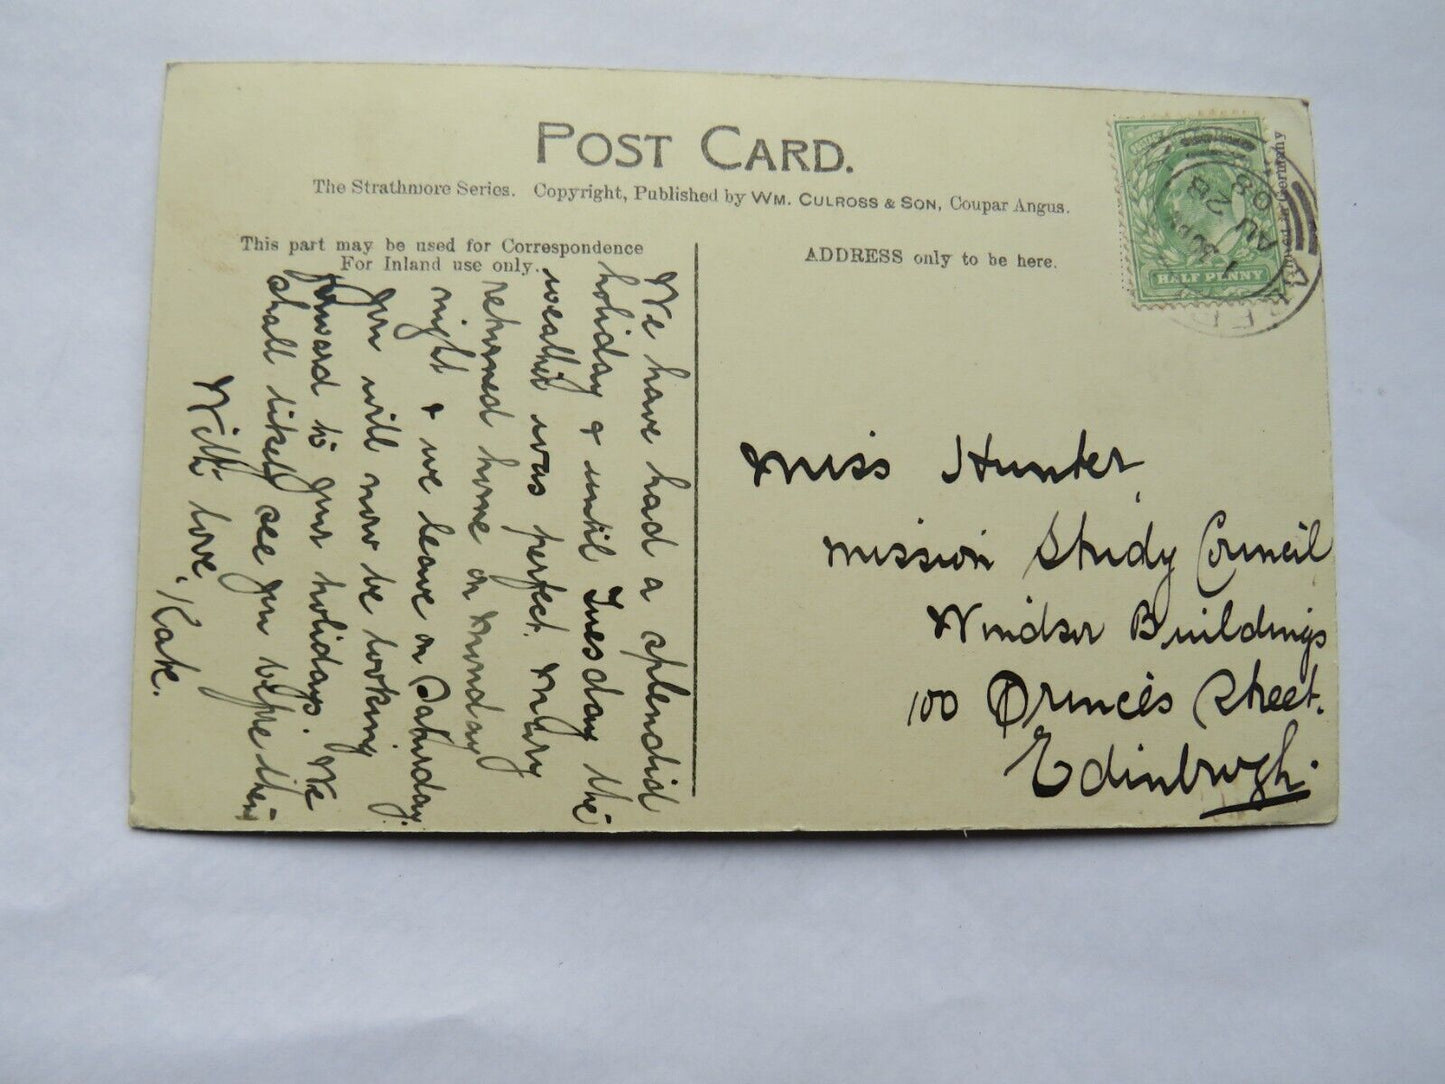 POST CARD.
The Strathmore Series. Copyright, Published by WM. CULROSS & SON, Coupar Angus.
This part may be used for Correspondence
For Inland use only.
ADDRESS only to be here.
We have had a splendid
holiday & until Tuesday the
weather was perfect. Mary
returned home on Monday
night & we leave on Saturday.
You will now be looking
forward to your holidays. We
shall likely see you before then
With love,
Kate.
Miss Hunter,
Mission Study Council
Windsor Buildings
100 Princes Street.
Edinburgh.
HALF PENNY
1 30 PM
AU 28
08
in Germany